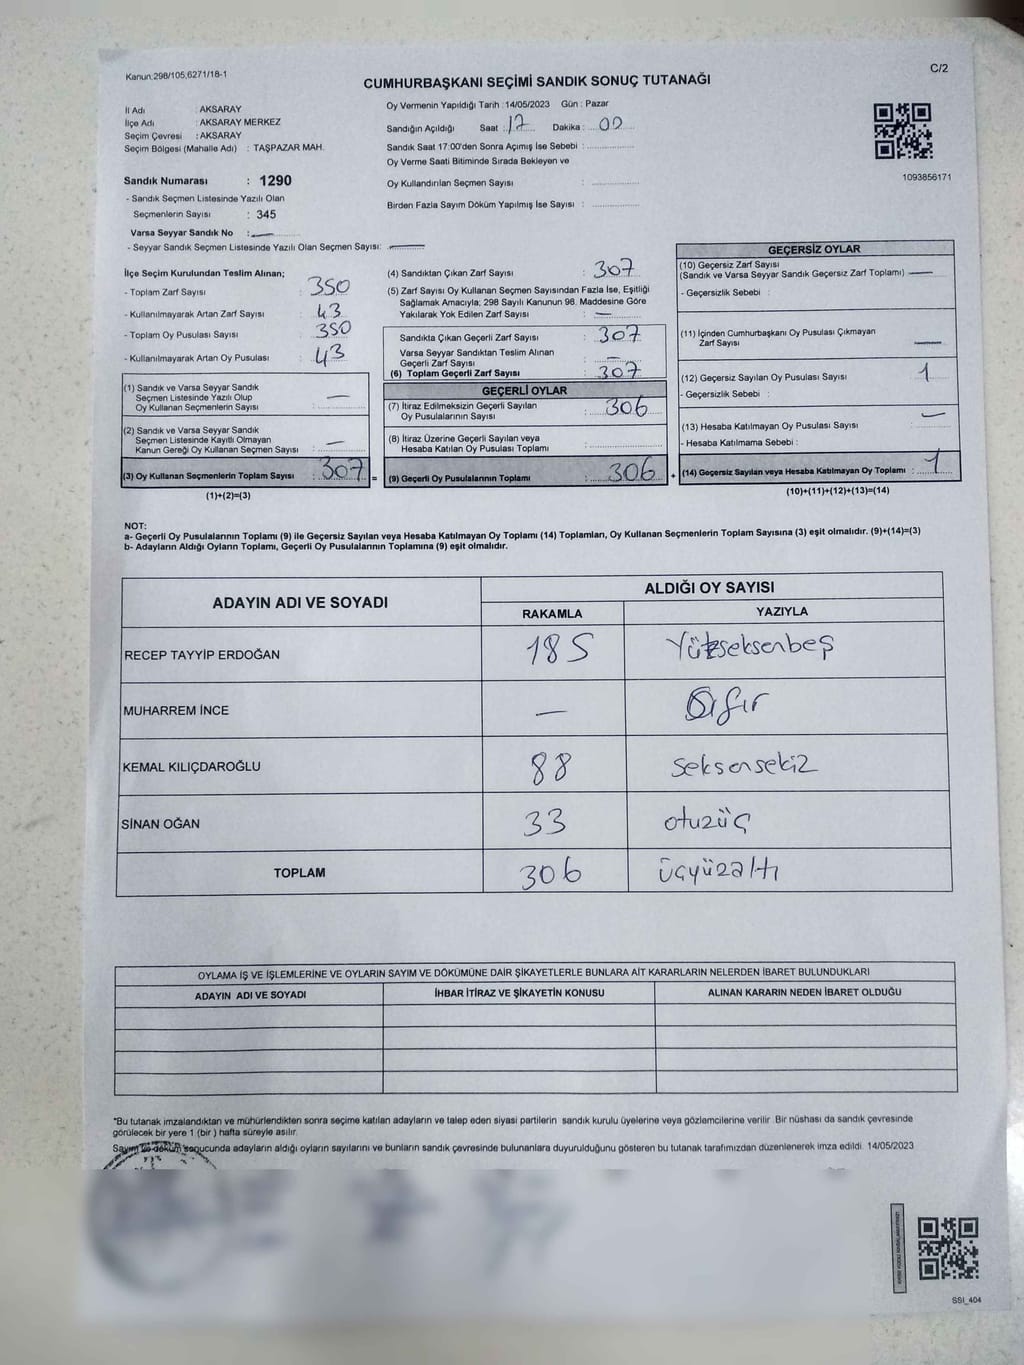 Kanun:298/105,6271/18-1
C/2
CUMHURBAŞKANI SEÇİMİ SANDIK SONUÇ TUTANAĞI
İl Adı : AKSARAY
İlçe Adı : AKSARAY MERKEZ
Seçim Çevresi : AKSARAY
Seçim Bölgesi (Mahalle Adı) : TAŞPAZAR MAH.
Oy Vermenin Yapıldığı Tarih : 14/05/2023 Gün : Pazar
Sandığın Açıldığı Saat : 17 Dakika : 00
Sandık Saat 17:00'den Sonra Açımış İse Sebebi :
Oy Verme Saati Bitiminde Sırada Bekleyen ve
Oy Kullandırılan Seçmen Sayısı :
Birden Fazla Sayım Döküm Yapılmış İse Sayısı :
1093856171
Sandık Numarası : 1290
- Sandık Seçmen Listesinde Yazılı Olan
Seçmenlerin Sayısı : 345
Varsa Seyyar Sandık No : —
- Seyyar Sandık Seçmen Listesinde Yazılı Olan Seçmen Sayısı: —
İlçe Seçim Kurulundan Teslim Alınan;
- Toplam Zarf Sayısı : 350
- Kullanılmayarak Artan Zarf Sayısı : 43
- Toplam Oy Pusulası Sayısı : 350
- Kullanılmayarak Artan Oy Pusulası : 43
(1) Sandık ve Varsa Seyyar Sandık
Seçmen Listesinde Yazılı Olup
Oy Kullanan Seçmenlerin Sayısı : —
(2) Sandık ve Varsa Seyyar Sandık
Seçmen Listesinde Kayıtlı Olmayan
Kanun Gereği Oy Kullanan Seçmen Sayısı : —
(3) Oy Kullanan Seçmenlerin Toplam Sayısı : 307
(1)+(2)=(3)
(4) Sandıktan Çıkan Zarf Sayısı : 307
(5) Zarf Sayısı Oy Kullanan Seçmen Sayısından Fazla İse, Eşitliği
Sağlamak Amacıyla; 298 Sayılı Kanunun 98. Maddesine Göre
Yakılarak Yok Edilen Zarf Sayısı : —
Sandıkta Çıkan Geçerli Zarf Sayısı : 307
Varsa Seyyar Sandıktan Teslim Alınan
Geçerli Zarf Sayısı : —
(6) Toplam Geçerli Zarf Sayısı : 307
GEÇERLİ OYLAR
(7) İtiraz Edilmeksizin Geçerli Sayılan
Oy Pusulalarının Sayısı : 306
(8) İtiraz Üzerine Geçerli Sayılan veya
Hesaba Katılan Oy Pusulası Toplamı :
= (9) Geçerli Oy Pusulalarının Toplamı : 306 +
GEÇERSİZ OYLAR
(10) Geçersiz Zarf Sayısı
(Sandık ve Varsa Seyyar Sandık Geçersiz Zarf Toplamı) —
- Geçersizlik Sebebi :
(11) İçinden Cumhurbaşkanı Oy Pusulası Çıkmayan
Zarf Sayısı —
(12) Geçersiz Sayılan Oy Pusulası Sayısı : 1
- Geçersizlik Sebebi :
(13) Hesaba Katılmayan Oy Pusulası Sayısı : —
- Hesaba Katılmama Sebebi :
(14) Geçersiz Sayılan veya Hesaba Katılmayan Oy Toplamı : 1
(10)+(11)+(12)+(13)=(14)
NOT:
a- Geçerli Oy Pusulalarının Toplamı (9) ile Geçersiz Sayılan veya Hesaba Katılmayan Oy Toplamı (14) Toplamları, Oy Kullanan Seçmenlerin Toplam Sayısına (3) eşit olmalıdır. (9)+(14)=(3)
b- Adayların Aldığı Oyların Toplamı, Geçerli Oy Pusulalarının Toplamına (9) eşit olmalıdır.
ADAYIN ADI VE SOYADI ALDIĞI OY SAYISI
RAKAMLA YAZIYLA
RECEP TAYYİP ERDOĞAN 185 Yüzseksenbeş
MUHARREM İNCE — Sıfır
KEMAL KILIÇDAROĞLU 88 seksensekiz
SİNAN OĞAN 33 otuzüç
TOPLAM 306 üçyüzaltı
OYLAMA İŞ VE İŞLEMLERİNE VE OYLARIN SAYIM VE DÖKÜMÜNE DAİR ŞİKAYETLERLE BUNLARA AİT KARARLARIN NELERDEN İBARET BULUNDUKLARI
ADAYIN ADI VE SOYADI İHBAR İTİRAZ VE ŞİKAYETİN KONUSU ALINAN KARARIN NEDEN İBARET OLDUĞU
*Bu tutanak imzalandıktan ve mühürlendikten sonra seçime katılan adayların ve talep eden siyasi partilerin sandık kurulu üyelerine veya gözlemcilerine verilir. Bir nüshası da sandık çevresinde
görülecek bir yere 1 (bir) hafta süreyle asılır.
Sayım ve döküm sonucunda adayların aldığı oyların sayılarını ve bunların sandık çevresinde bulunanlara duyurulduğunu gösteren bu tutanak tarafımızdan düzenlenerek imza edildi. 14/05/2023
SSI_404